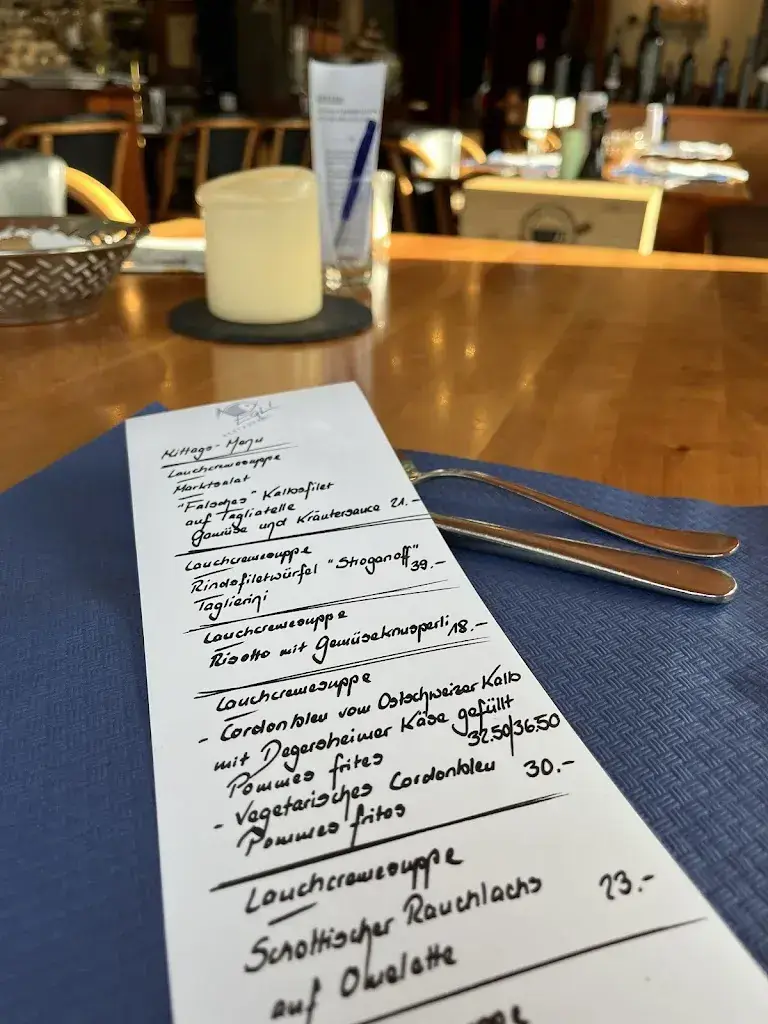 EGLI
Mittags-Menu
Lauchcremesuppe
Marktsalat
"Falsches" Kalbsfilet
auf Tagliatelle
Gemüse und Kräutersauce 21.-
Lauchcremesuppe
Rindsfiletwürfel "Stroganoff" 39.-
Taglierini
Lauchcremesuppe
Risotto mit Gemüseknusperli 18.-
Lauchcremesuppe
- Cordonbleu vom Ostschweizer Kalb
mit Degersheimer Käse gefüllt
Pommes frites 32.50/36.50
- Vegetarisches Cordonbleu 30.-
Pommes frites
Lauchcremesuppe
Schottischer Rauchlachs 23.-
auf Omelette